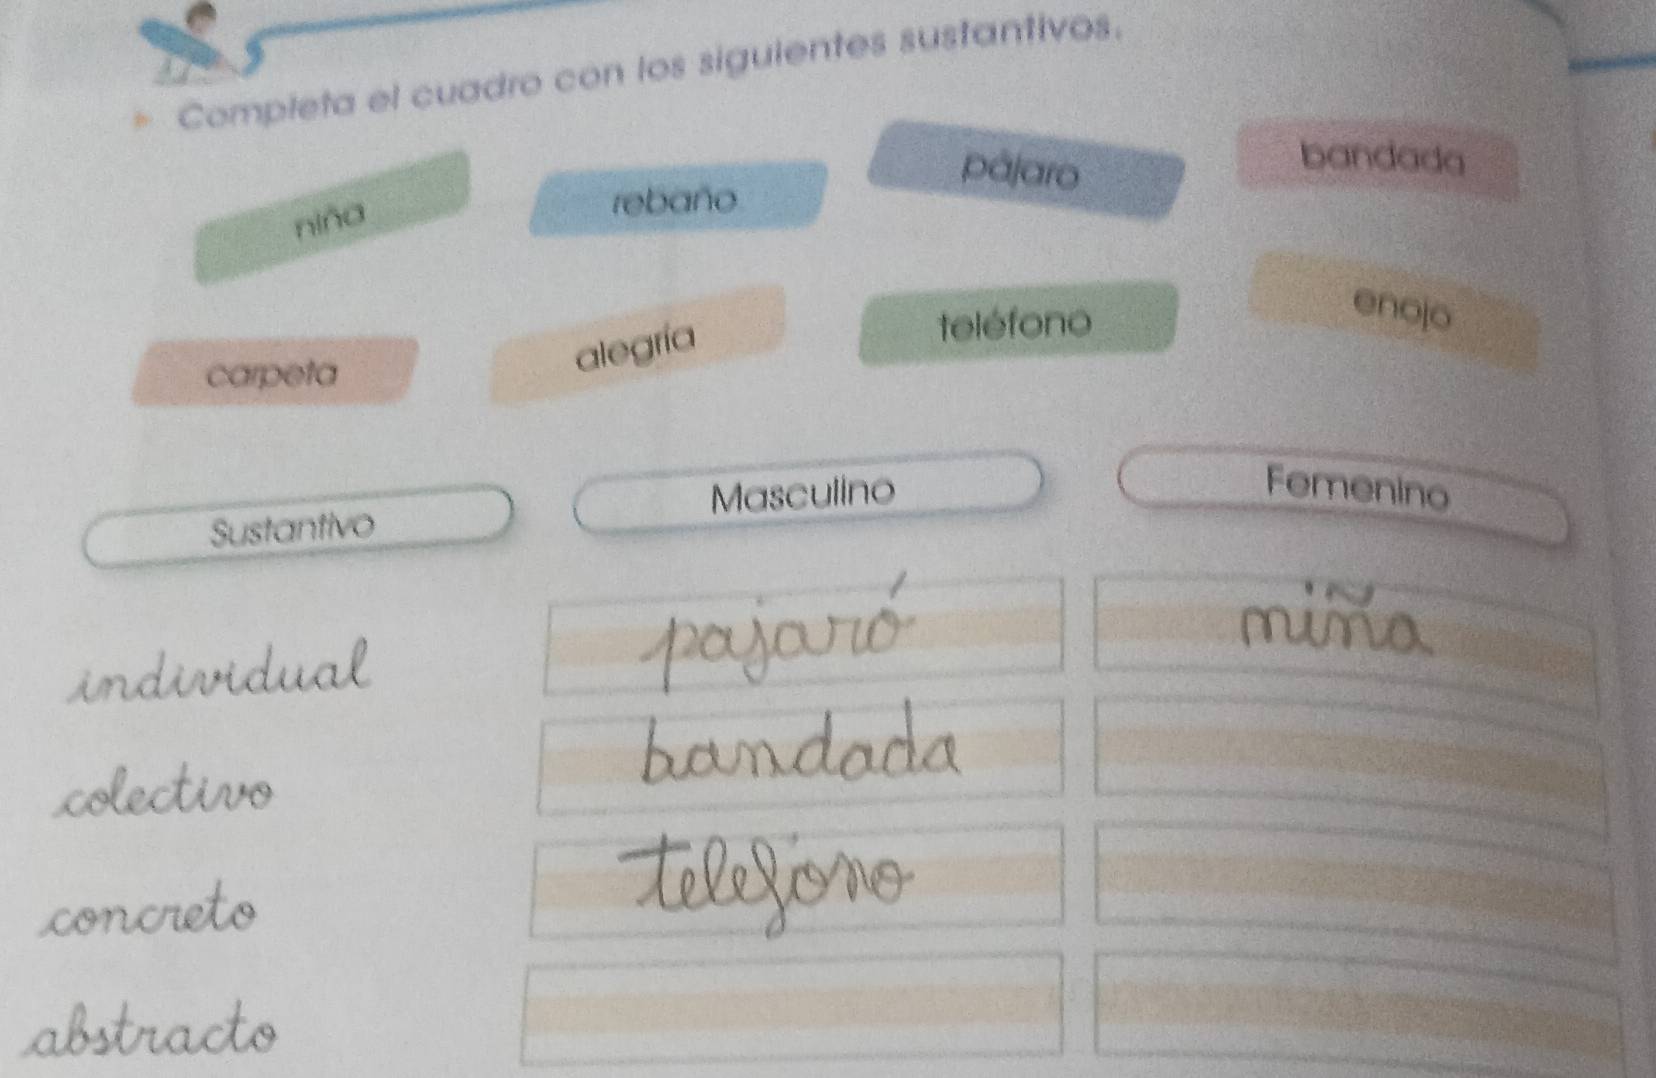 Completa el cuadro con los siguientes sustantivos.
niña rebaño pájaro bandada
carpeta alegría teléfono enojo
Sustantivo Masculino Femenino
individual pajaró miña
colectivo bandada
concreto telefono
abstracto